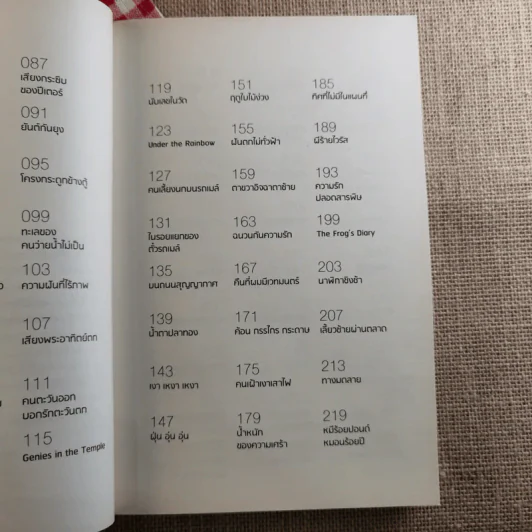 087
เสียงกระซิบ
ของปีเตอร์
091
ยันต์กันยุง
095
โครงกระดูกข้างตู้
099
ทะเลของ
คนว่ายน้ำไม่เป็น
103
ความฝันที่ไร้ภาพ
107
เสียงพระอาทิตย์ตก
111
คนตะวันออก
มอกรักตะวันตก
115
Genies in the Temple
119
ฉันเลอในวัด
123
Under the Rainbow
127
คนเลี้ยงนกบนรถเมล์
131
ในรอยแยกของ
ตั๋วรถเมล์
135
บนถนนสุญญากาศ
139
น้ำตาปลาทอง
143
เงา เหงา เหงา
147
ฝุ่น อุ่น อุ่น
151
ฤดูใบไม้ง่วง
155
ฝนตกไม่ทั่วฟ้า
159
ดาบวาอิจฉาตาซ้าย
163
ฉนวนกันความรัก
167
คืนที่ผมมีเวทมนตร์
171
ค้อน กรรไกร กระดาษ
175
คนเฝ้าเงาเสาไฟ
179
น้ำหนัก
ของความเศร้า
185
ทิศที่ไม่มีในแผนที่
189
ผีร้ายไวรัส
193
ความรัก
ปลอดสารพิษ
199
The Frog's Diary
203
นาฬิกาชิงช้า
207
เลี้ยวซ้ายผ่านตลาด
213
ทางมดลาย
219
หมีร้อยปอนด์
หมอนร้อยปี